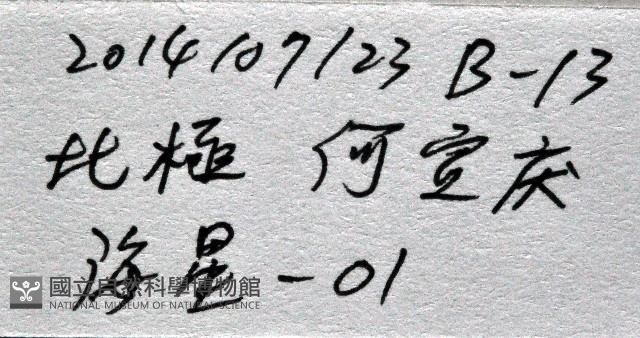 2014/07/23 B-13
北極 何宣庆
海星-01
國立自然科學博物館
NATIONAL MUSEUM OF NATURAL SCIENCE